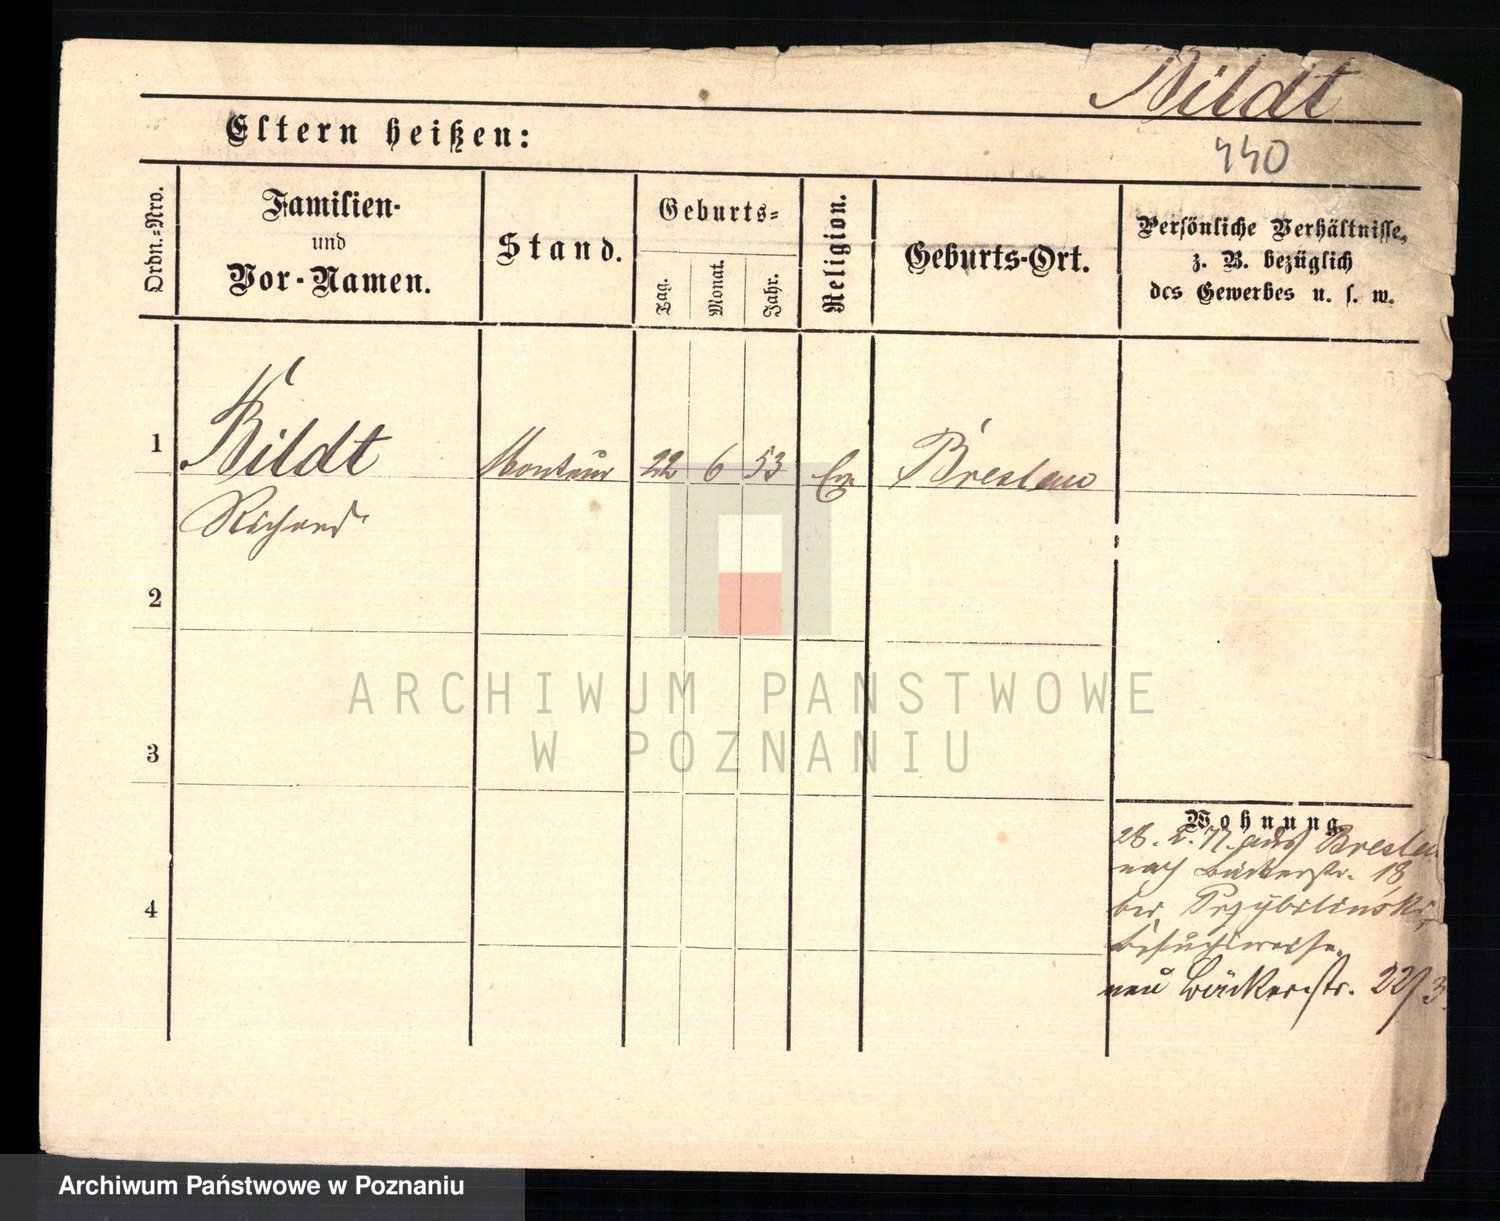 Bildt
Eltern heißen:
440
Ordn.-Nro.
Familien-
und
Vor-Namen.
Stand.
Geburts-
Tag.
Monat.
Jahr.
Religion.
Geburts-Ort.
Persönliche Verhältnisse,
z. B. bezüglich
des Gewerbes u. s. w.
1
Bildt
Monteur
22
6
53
Ev
Breslau
Richard
2
ARCHIWUM PAŃSTWOWE
W POZNANIU
3
Wohnung
28. 2. 77. aus Breslau
nach Bäckerstr. 18
bei Przybilinski
besuchsweise.
neu Bäckerstr. 22/3.
4
Archiwum Państwowe w Poznaniu